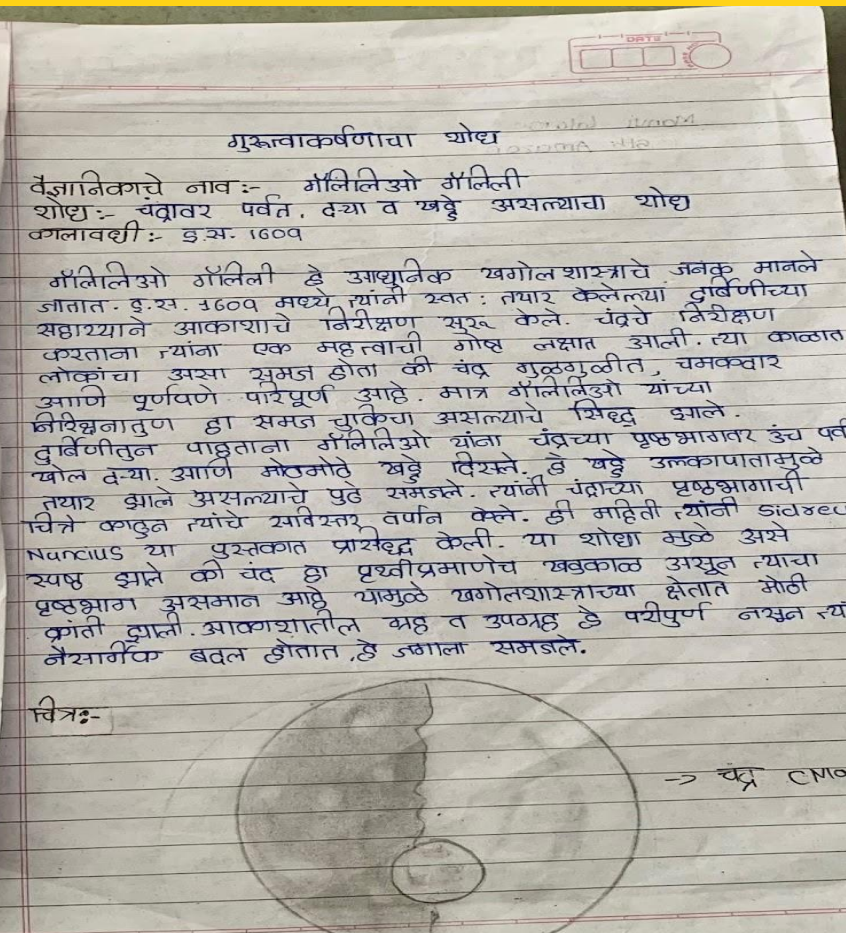 DATE
गुरूत्वाकर्षणाचा शोध
वैज्ञानिकाचे नाव:- गॅलिलिओ गॅलिली
शोध:- चंद्रावर पर्वत, दऱ्या व खड्डे असल्याचा शोध
कालावधी:- इ.स. 1609
गॅलिलिओ गॅलिली हे आधुनिक खगोल शास्त्राचे जनक मानले
जातात. इ.स. 1609 मध्ये त्यांनी स्वत: तयार केलेल्या दुर्बिणीच्या
सहाय्याने आकाशाचे निरीक्षण सुरू केले. चंद्रचे निरीक्षण
करताना त्यांना एक महत्त्वाची गोष्ट लक्षात आली. त्या काळात
लोकांचा असा समज होता की चंद्र गुळगुळीत, चमकदार
आणि पूर्णपणे परिपूर्ण आहे. मात्र गॅलिलिओ यांच्या
निरिक्षनातुण हा समज चुकिचा असल्याचे सिध्द झाले.
दुर्बिणीतुन पाहताना गॅलिलिओ यांना चंद्रच्या पृष्ठभागवर उंच
खोल दऱ्या. आणि मोठमोठे खड्डे दिसले. हे खड्डे उल्कापातामुळे
तयार झाले असल्याचे पुढे समजले. त्यांनी चंद्राच्या पृष्ठभागाची
चित्रे काढुन त्यांचे सविस्तर वर्णन केले. ही महिती त्यांनी Sidreu
Nuncius या पुस्तकात प्रसिध्द केली. या शोधा मुळे असे
स्पष्ठ झाले की चंद हा पृथ्वीप्रमाणेच खडकाळ असून त्याचा
पृष्ठभाग असमान आहे यामुळे खगोलशास्त्राच्या क्षेतात मोठी
क्रांती झाली. आकाशातील ग्रह व उपग्रह हे परीपुर्ण नसून
नैसर्गिक बदल होतात, हे जगाला समजले.
चित्र:-
-> चंद्र